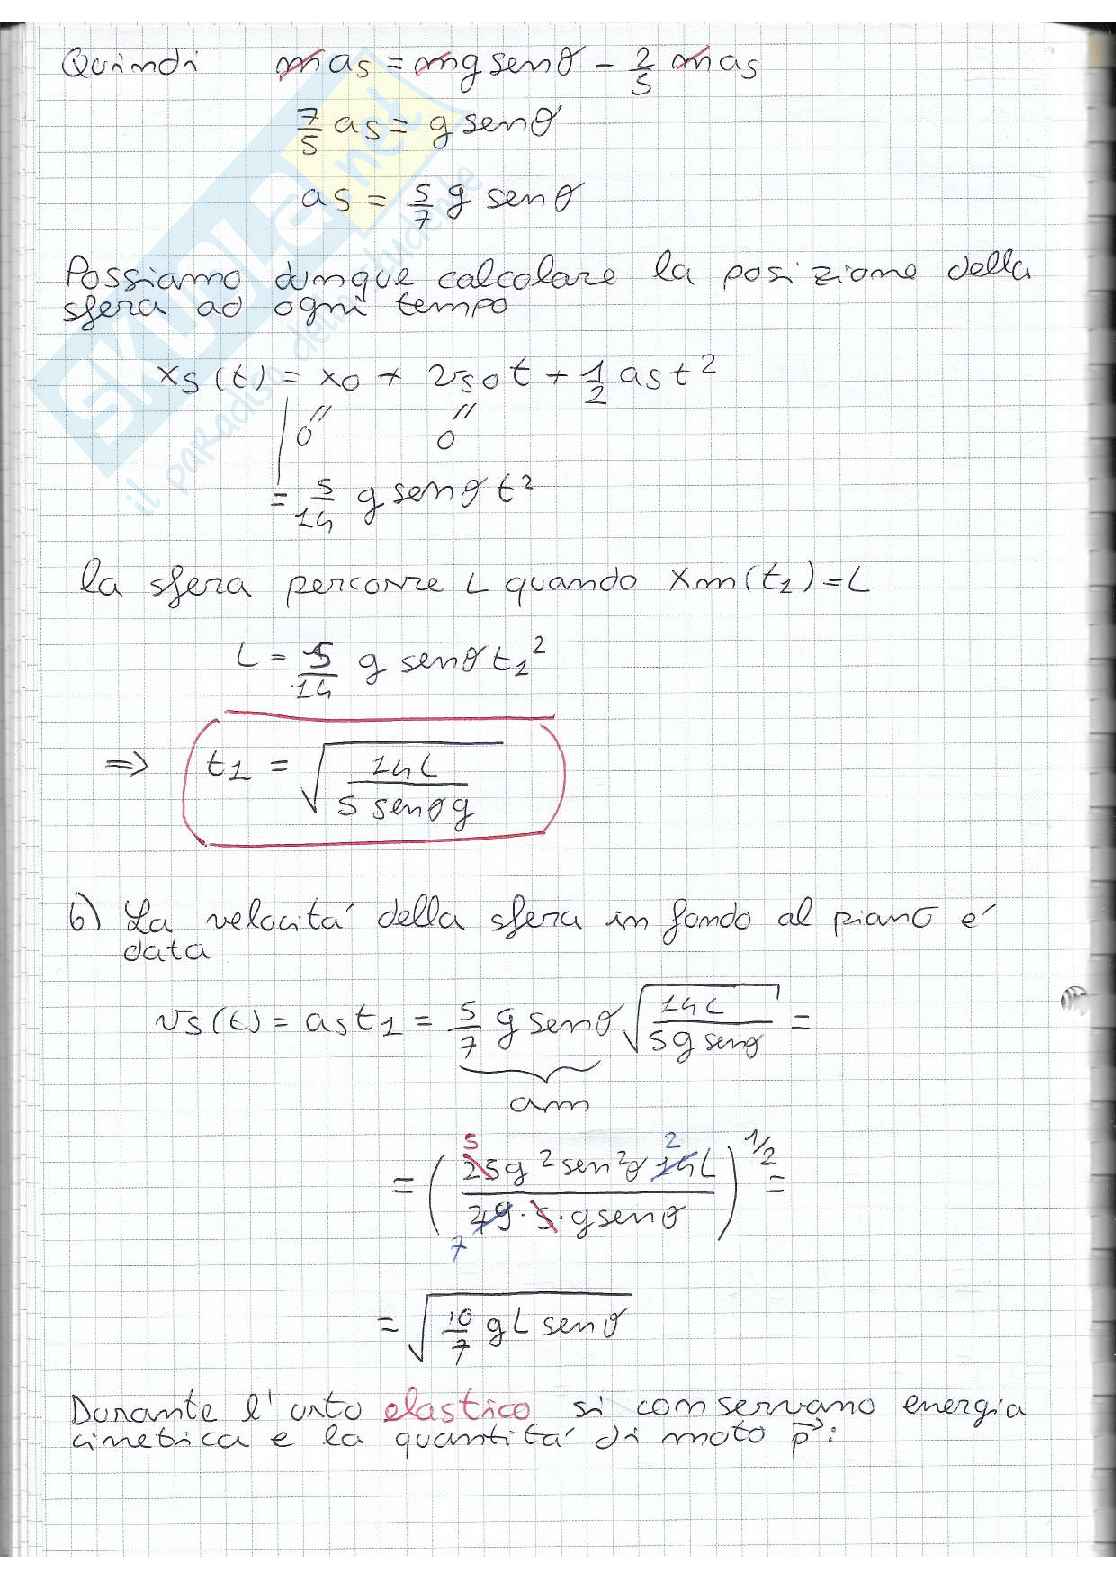 Quindi m as = m g senθ - 2/5 m as
7/5 as = g senθ
as = 5/7 g senθ
Possiamo dunque calcolare la posizione della
sfera ad ogni tempo
xs(t) = x0 + vs0t + 1/2 ast²
" "
0 0
= 5/14 g senθ t²
la sfera percorre L quando xm(t1) = L
L = 5/14 g senθ t1²
⇒ t1 = √(14L / 5 senθ g)
b) La velocitá della sfera in fondo al piano é
data
vs(t) = as t1 = 5/7 g senθ √(14L / 5g senθ) =
am
5 2
= (25g² sen²θ 14L / 49 · 5 · g senθ)^1/2 =
7
= √(10/7 gL senθ)
Durante l'urto elastico si conservano energia
cinetica e la quantitá di moto p⃗:
SKUOLA.net
il paradiso dello studente